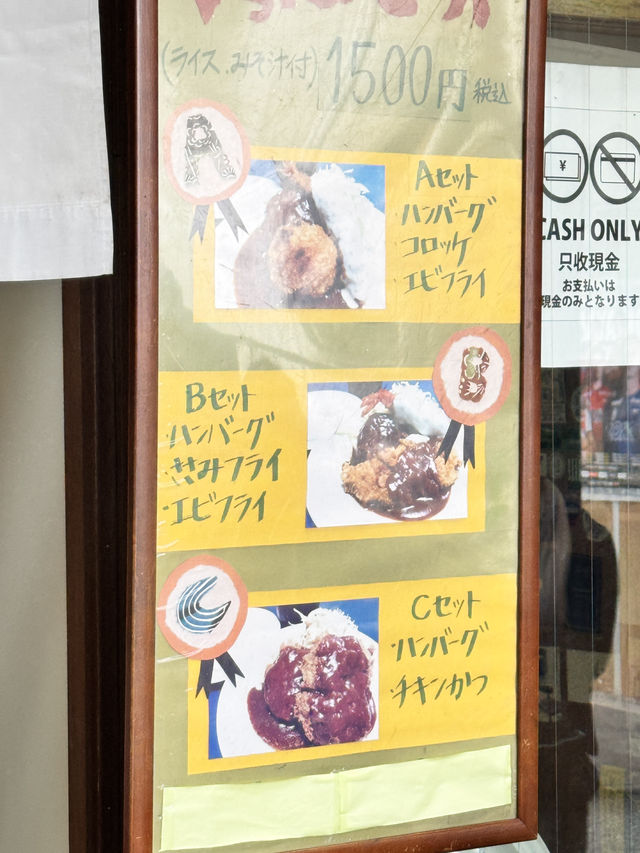 (ライス、みそ汁付) 1500円 税込
A
Aセット
・ハンバーグ
コロッケ
・エビフライ
Bセット
・ハンバーグ
・ささみフライ
・エビフライ
C
Cセット
・ハンバーグ
・チキンカツ
¥
CASH ONLY
只收現金
お支払いは
現金のみとなります